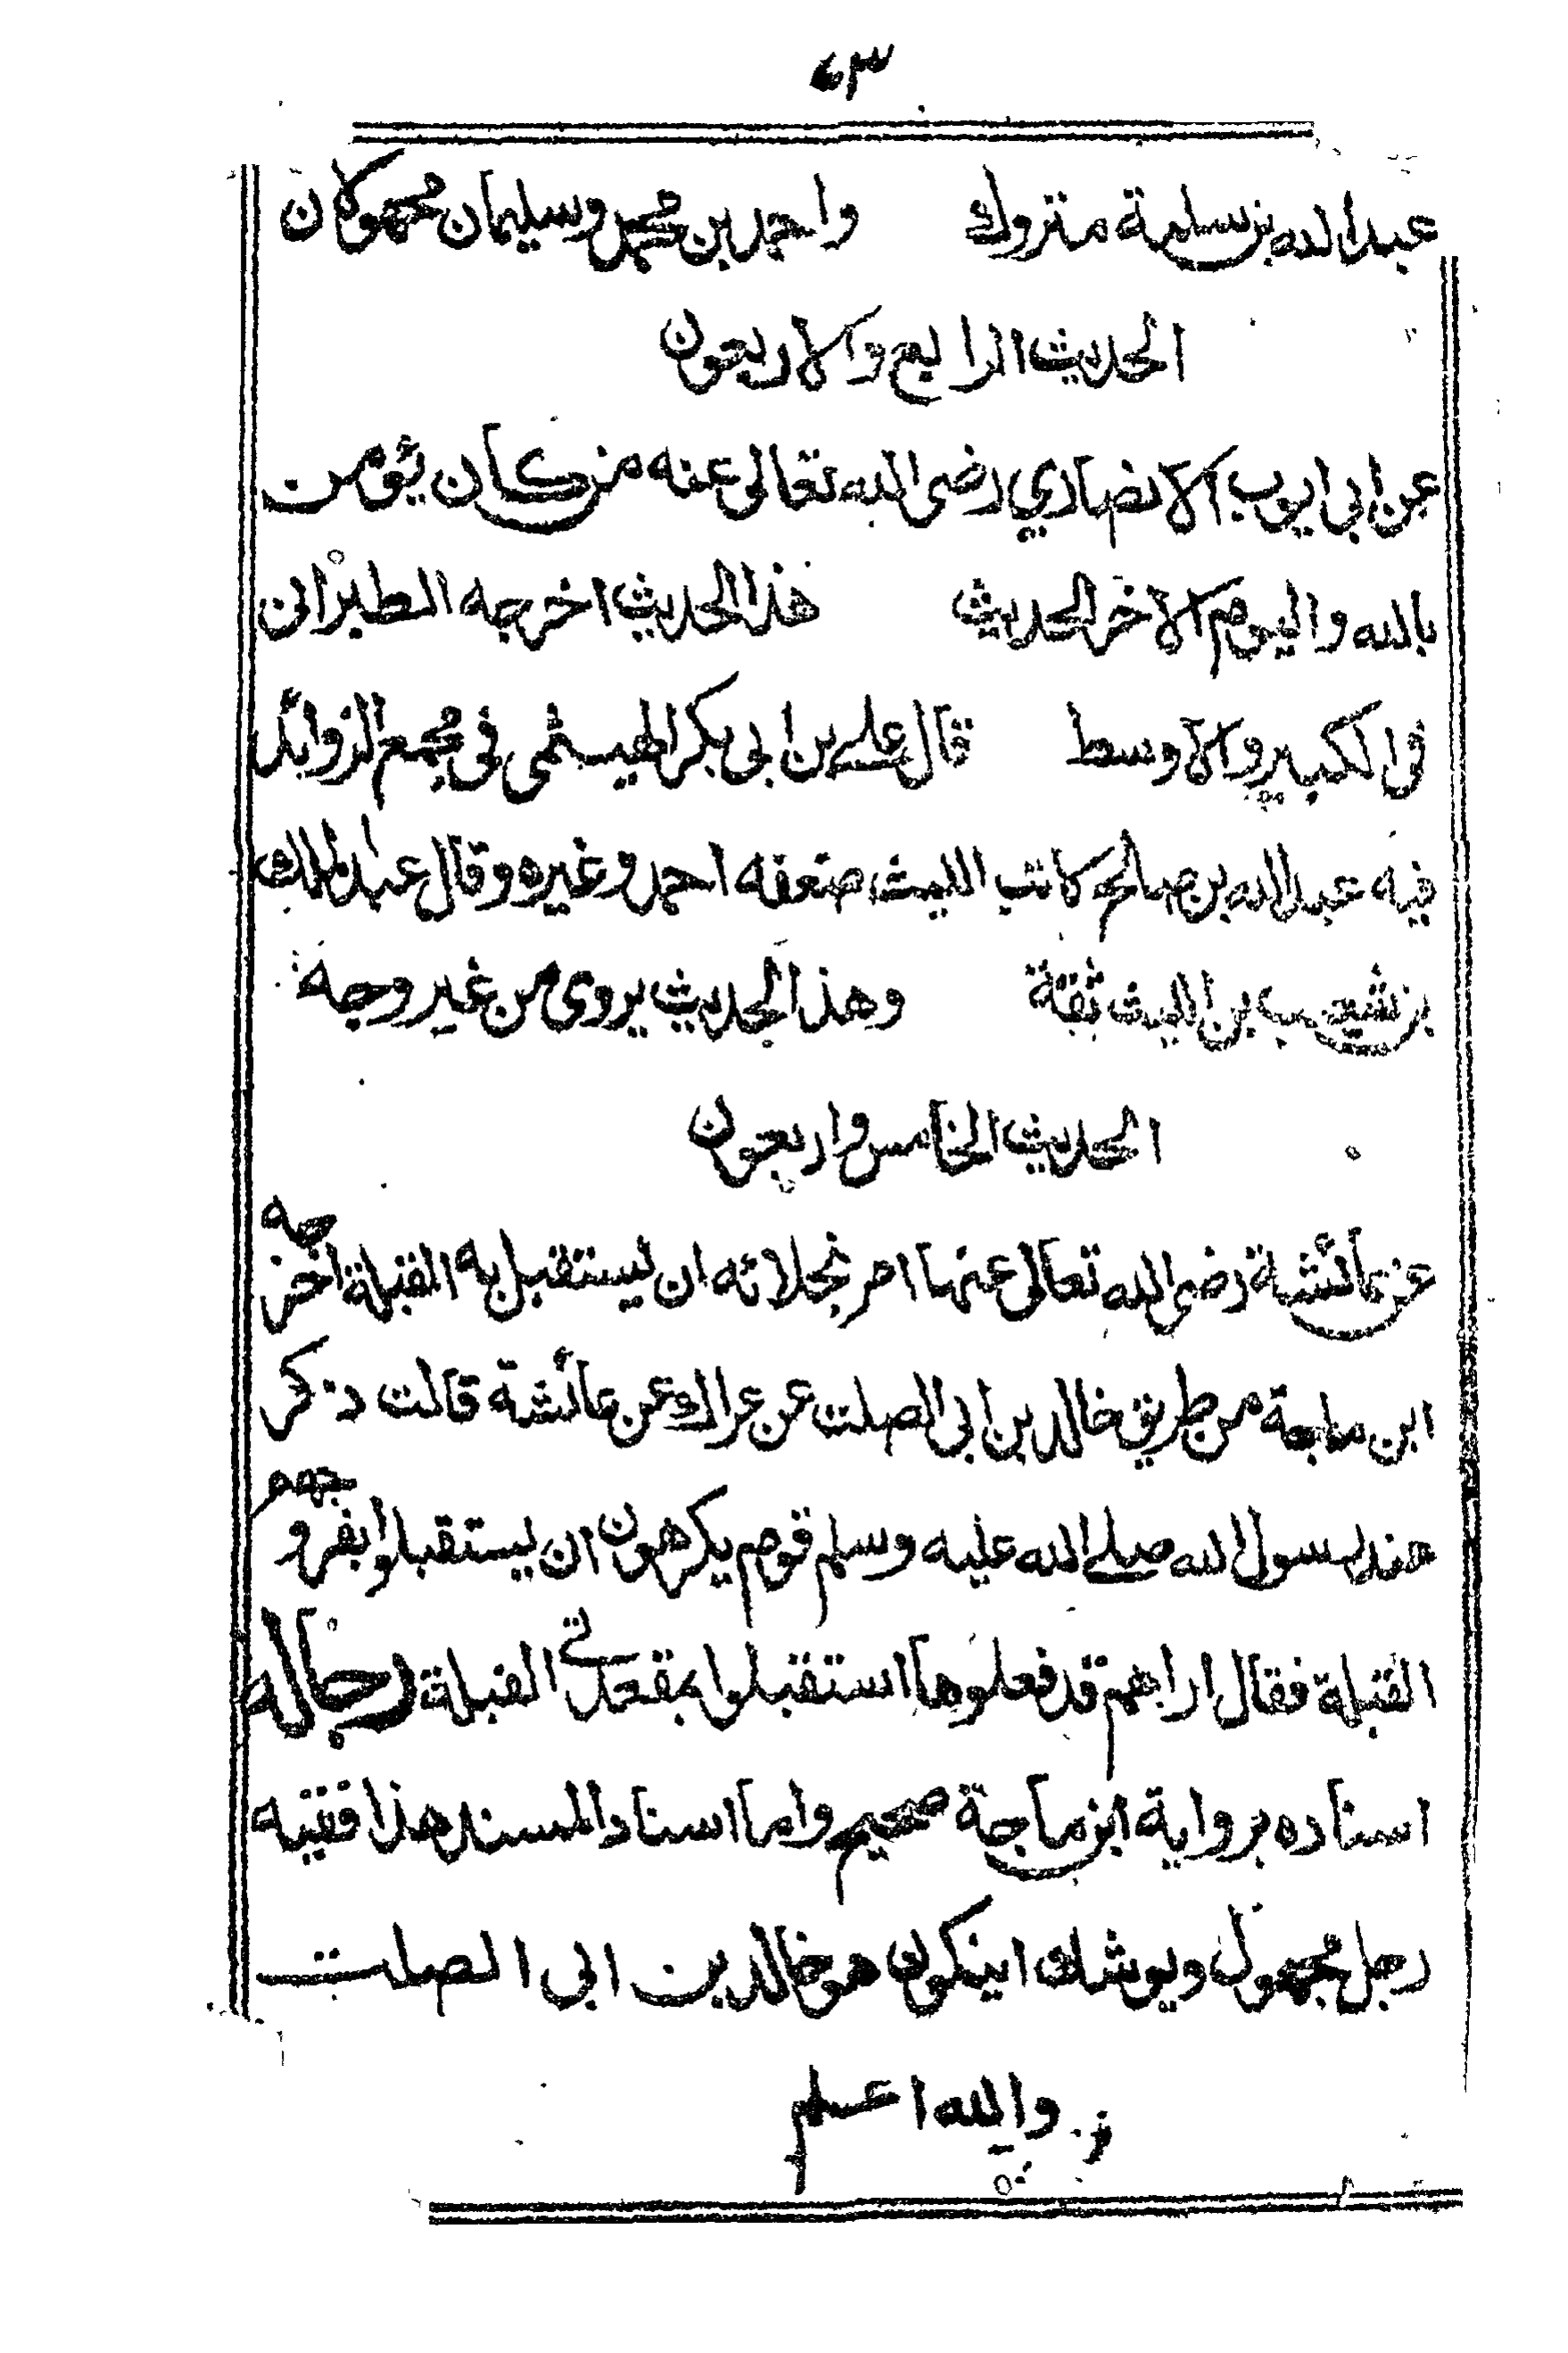 ٤٣
عبد الله بن سلمة متروك واحمد بن محمد وسليمان مجهولان
الحديث الرابع والاربعون
عن ابى ايوب الانصاري رضى الله تعالى عنه من كان يؤمن
بالله واليوم الاخر الحديث هذا الحديث اخرجه الطبرانى
فى الكبير والاوسط قال على بن ابى بكر الهيثمى فى مجمع الزوائد
فيه عبد الله بن صالح كاتب الليث ضعفه احمد وغيره وقال عبد الملك
بن شعيب بن الليث ثقة وهذا الحديث يروى من غير وجه
الحديث الخامس واربعون
عن عائشة رضى الله تعالى عنها امر بخلائه ان يستقبل به القبلة اخرجه
ابن ماجة من طريق خالد بن ابى الصلت عن عراك عن عائشة قالت ذكر
عند رسول الله صلى الله عليه وسلم قوم يكرهون ان يستقبلوا بفروجهم
القبلة فقال اراهم قد فعلوها استقبلوا بمقعدتى القبلة رجال
اسناده برواية ابن ماجة صحيح واما اسناد المسند هذا ففيه
رجل مجهول ويوشك ان يكون هو خالد بن ابى الصلت
والله اعلم